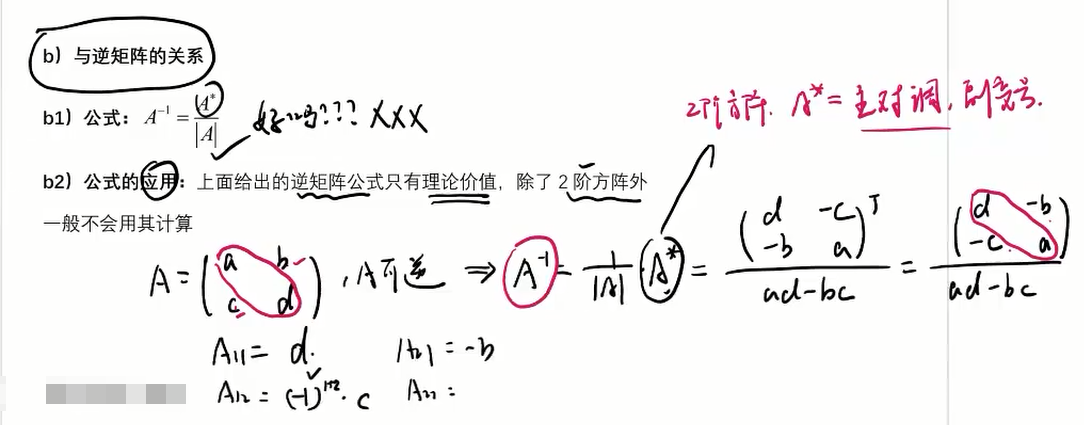 b）与逆矩阵的关系
b1）公式：A⁻¹ = A*/|A| 好吗??? XXX
2阶方阵. A* = 主对调, 副变号.
b2）公式的应用：上面给出的逆矩阵公式只有理论价值，除了 2 阶方阵外
一般不会用其计算
A = (a b; c d), A可逆 ⇒ A⁻¹ = 1/|A| · A* = (d -c; -b a)ᵀ / ad-bc = (d -b; -c a) / ad-bc
A₁₁ = d. A₂₁ = -b
A₁₂ = (-1)¹⁺² · c A₂₂ =